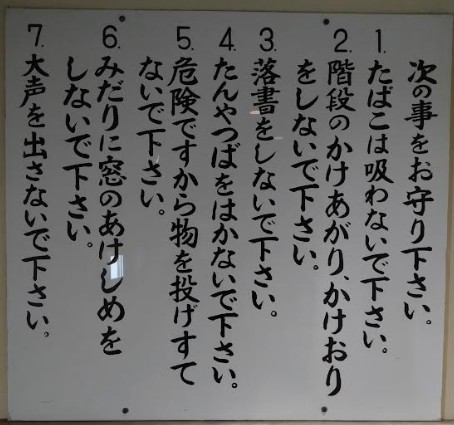 次の事をお守り下さい。
1. たばこは吸わないで下さい。
2. 階段のかけあがり、かけおり
をしないで下さい。
3. 落書をしないで下さい。
4. たんやつばをはかないで下さい。
5. 危険ですから物を投げすて
ないで下さい。
6. みだりに窓のあけしめを
しないで下さい。
7. 大声を出さないで下さい。